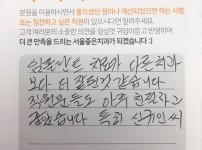 본원을 이용하시면서 좋으셨던 점이나 개선되었으면 하는 사항,
또는 칭찬하고 싶은 직원이 있으시다면 알려주세요.
고객 여러분의 소중한 의견을 정성껏 귀담아듣고 반영하여
더 큰 만족을 드리는 서울좋은치과가 되겠습니다 :)
임플란트 치료가 다른치과
보다 더 잘된것 같습니다
직원분들도 아주 친절하고
좋았습니다 특히 신규인씨